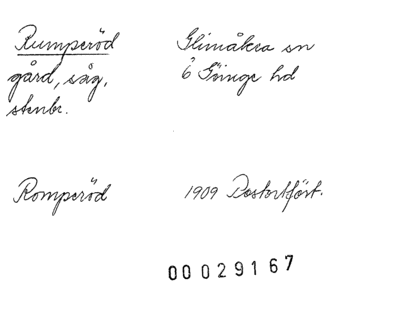 Rumperöd
gård, såg,
stenbr.
Glimåkra sn
Ö Göinge hd
Romperöd
1909 Postortsfört.
00029167